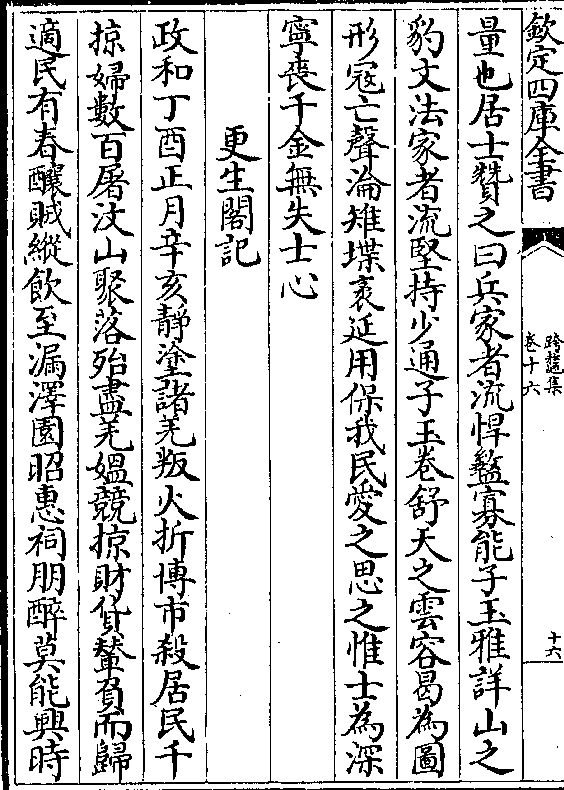 欽定四庫全書
跨鼇集
卷十六
十六
量也居士贊之曰兵家者流悍盭寡能子玉雅詳山之
豹文法家者流堅持少通子玉卷舒天之雲容曷為圖
形寇亡聲淪雉堞袤延用保我民愛之思之惟士為深
寧喪千金無失士心
更生閣記
政和丁酉正月辛亥靜塗諸羌叛火折博市殺居民千
掠婦數百屠汶山聚落殆盡羌媼競掠財貨輦負而歸
適民有春釀賊縱飲至漏澤園昭惠祠朋醉莫能興時